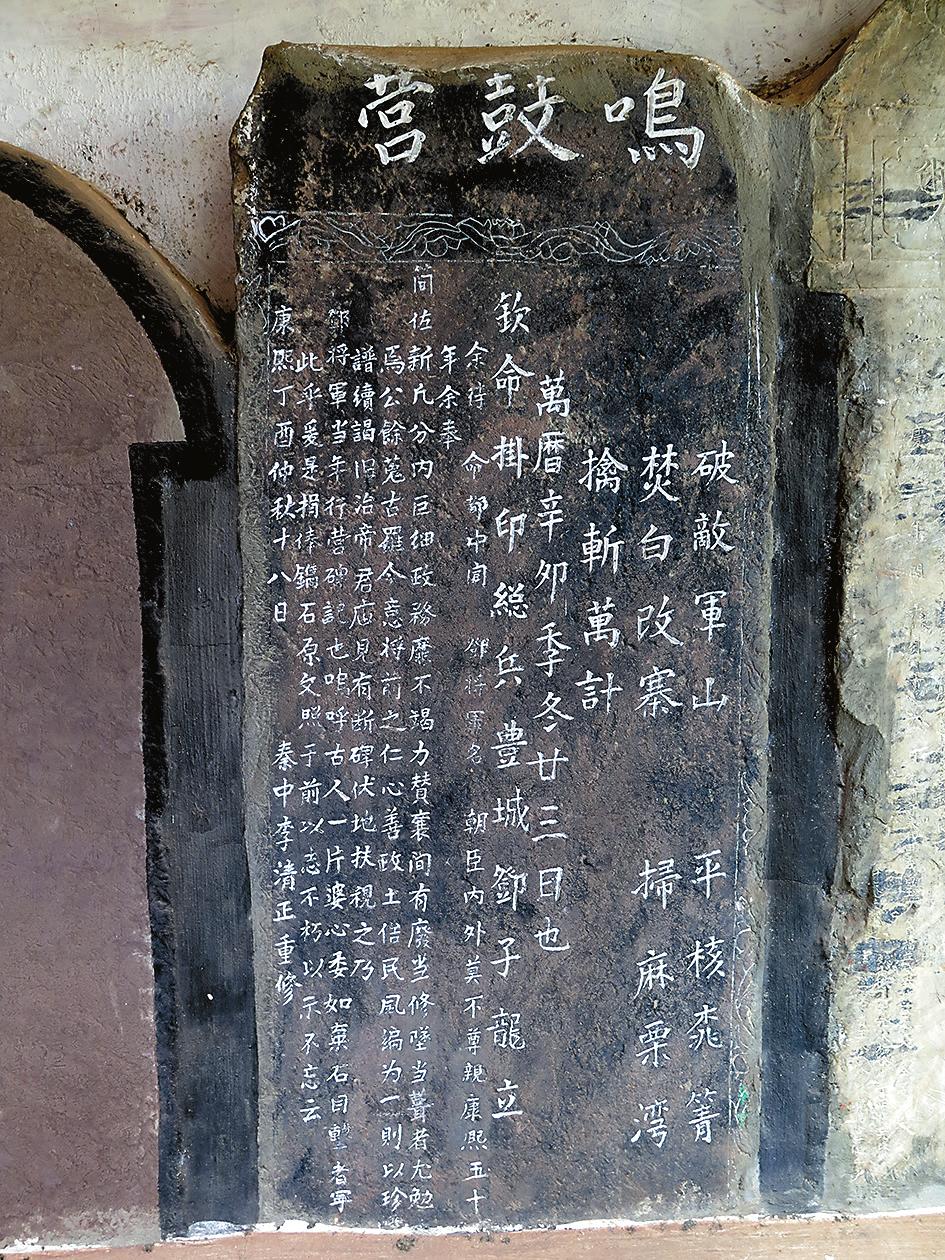 鳴鼓營
破敵軍山 平核桃箐
焚白改寨 掃麻栗湾
擒斬萬計
萬曆辛卯季冬廿三日也
欽命掛印総兵豊城鄧子龍立
余待 命部中間 鄧將軍名 朝臣内外莫不尊親康熙五十
年余奉
简佐新凢分内巨细政務靡不竭力賛襄间有廢当修墜当者尤勉
焉公餘蒐古羅今意将前之仁心善政土俗民風编为一則以珍
譜續謁旧治帝君庙見有断碑伏地扶視之乃
鄧将軍当年行营碑記也嗚呼古人一片婆心委如棄石目者寕
此乎爰是捐俸鐫石原文照于前以志不朽以示不忘云
康熙丁酉仲秋十八日 秦中李清正重修